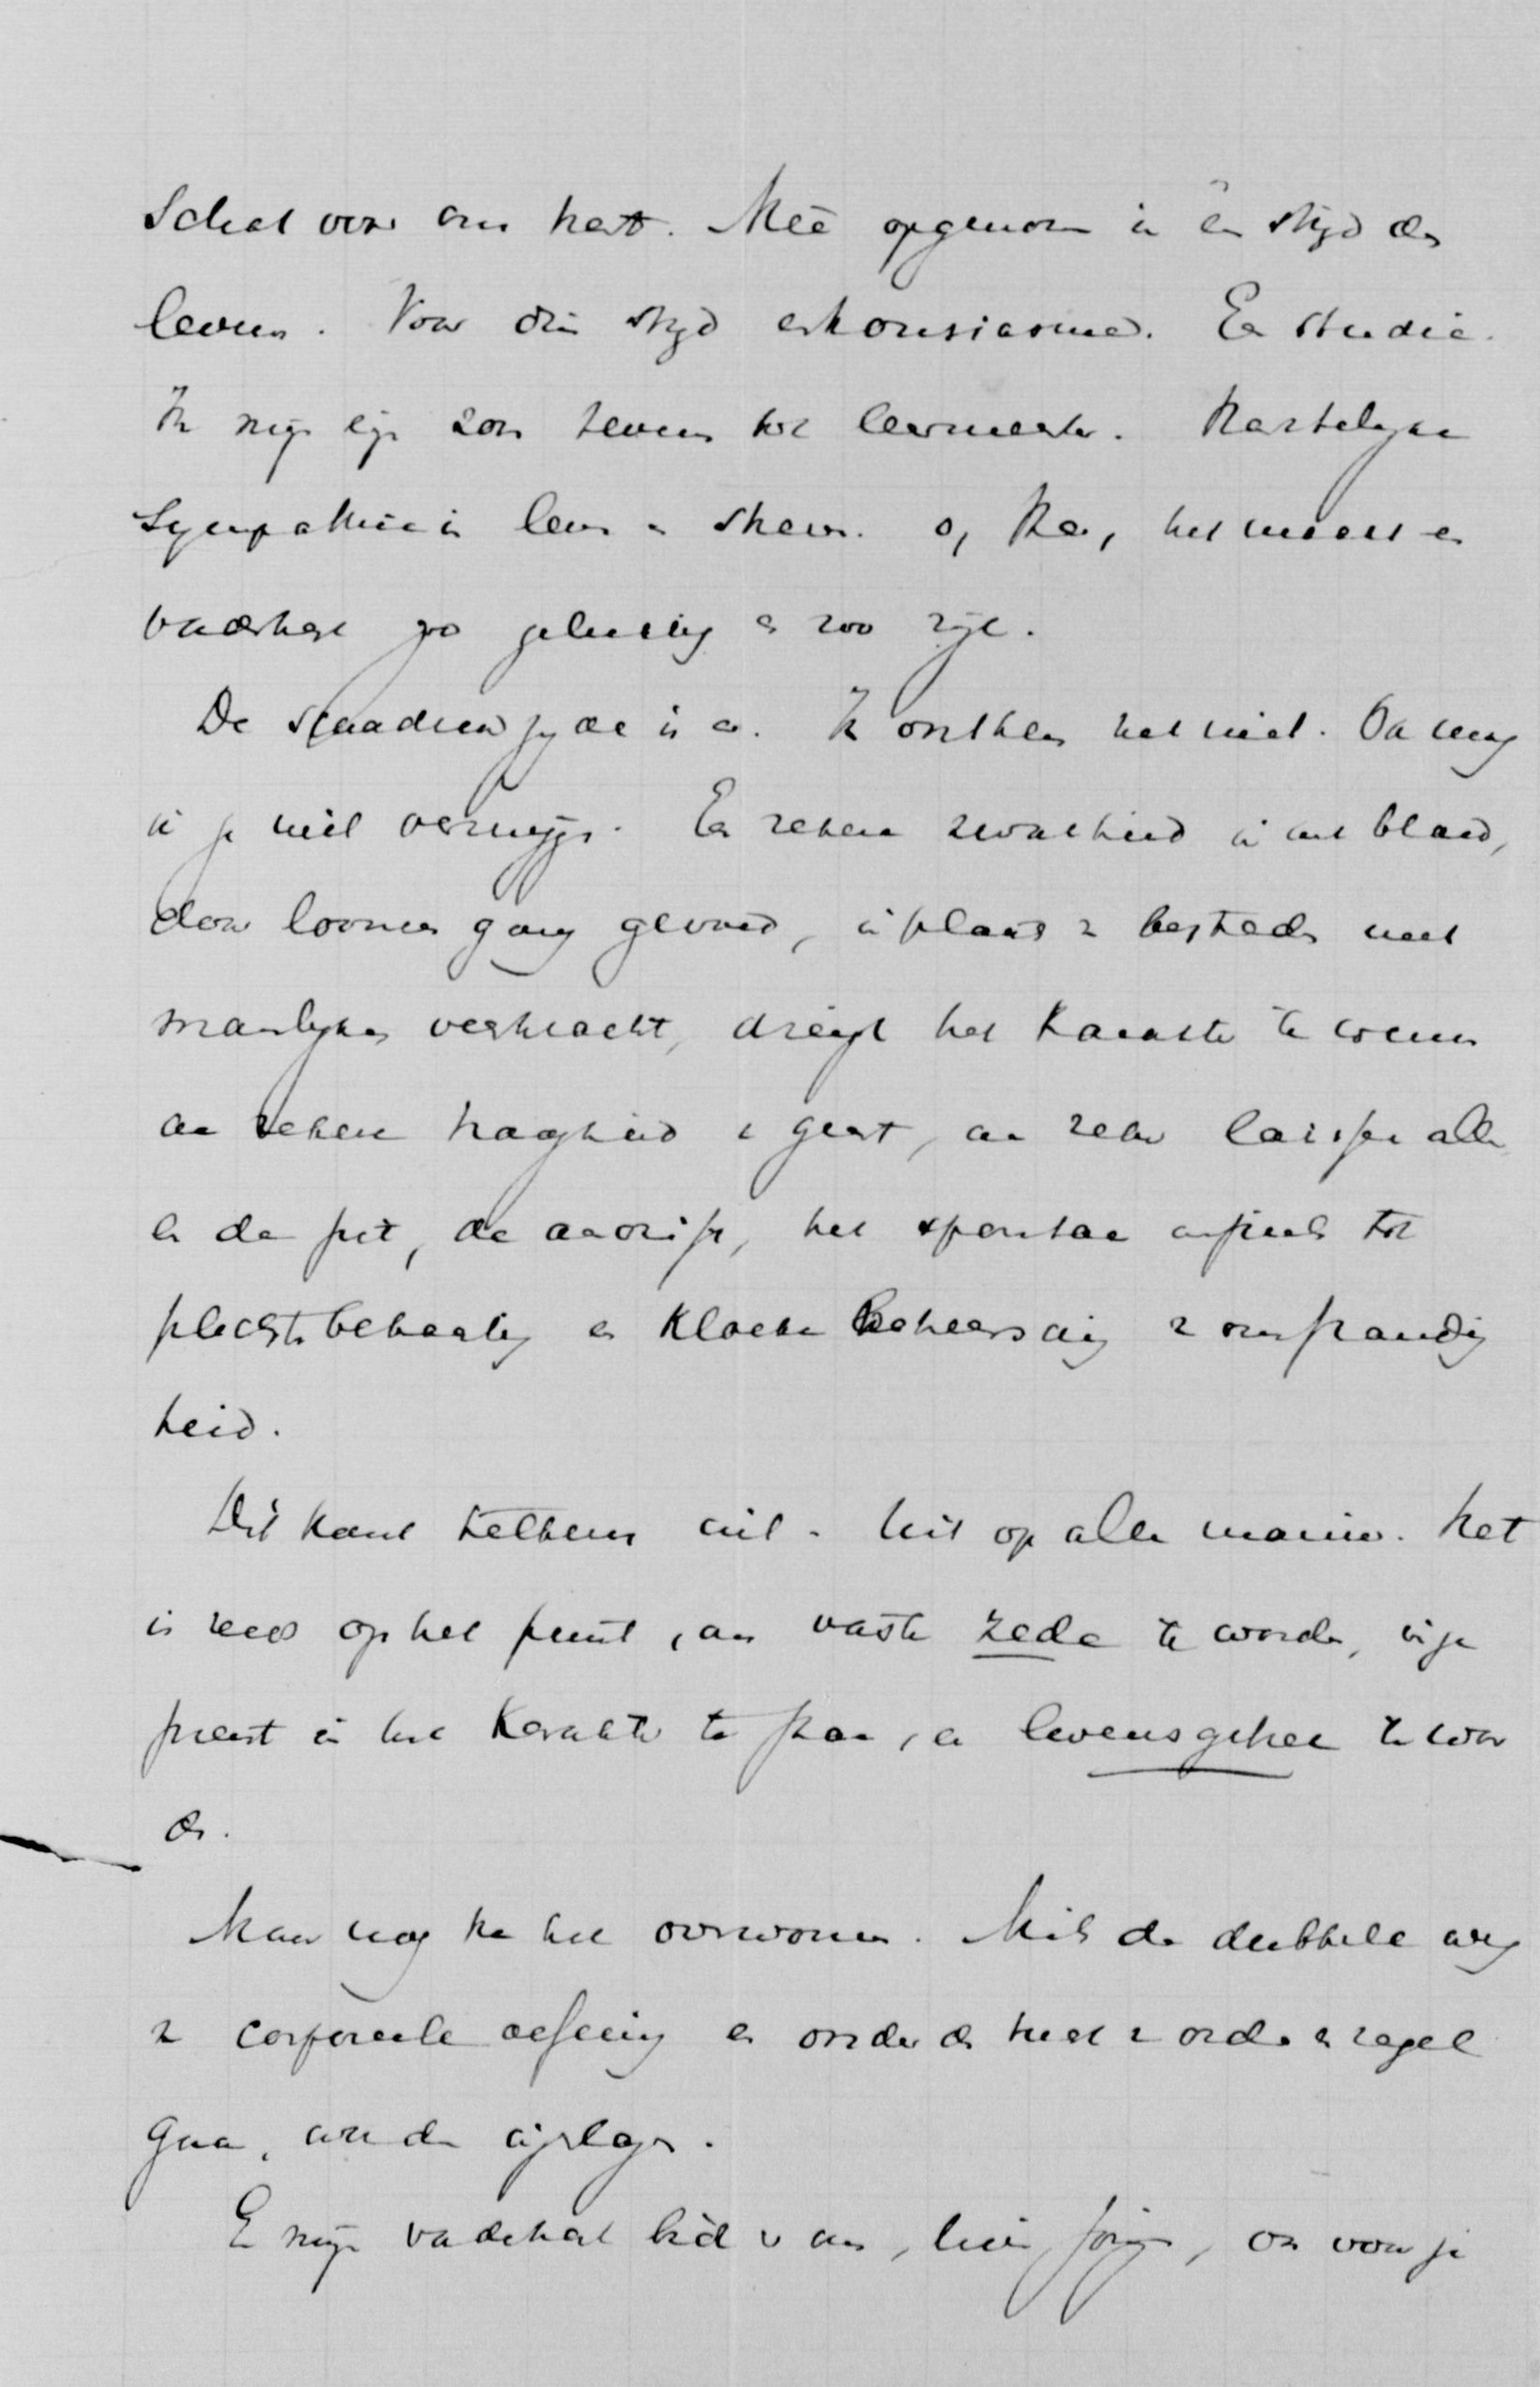 Schat voor ons hart. Meê opgenomen in een strijd des
levens. Voor dien strijd enthousiasme. En studie.
In mijn eigen zoon tevens tot leermeester. Hartelijke
Sympathie in leven en streven. o, Ker, het moest een
vaderhart zoo gelukkig en zoo rijk.
De schaduwzijde is er. Ik ontken het niet. Ook mag
ik je niet verzwijgen. Een zekere zwaarheid in het bloed,
door loomen gang gevoed, in plaats van bestreden met
manlijke veerkracht, dreigt het karakter te
aan zekere traagheid van geest, aan zeker laisser aller
en de pit, de aandrift, het spontane tot
plichtsbetrachting en kloeke beheersching van omstandig
heid.
Dit komt telkens uit. Uit op allen manier. Het
is reeds op het punt, om vaste zede te worden, in je
in het karakter te staan, en levensgeheel te wor
den.
Maar nog kan het overwonnen. Mits de dubbele weg
van corporeele oefening en onder de tucht van orde en regel
gaan, worde ingeslagen.
En mijn vaderhart bidt v om, lieve jongen, om voor je